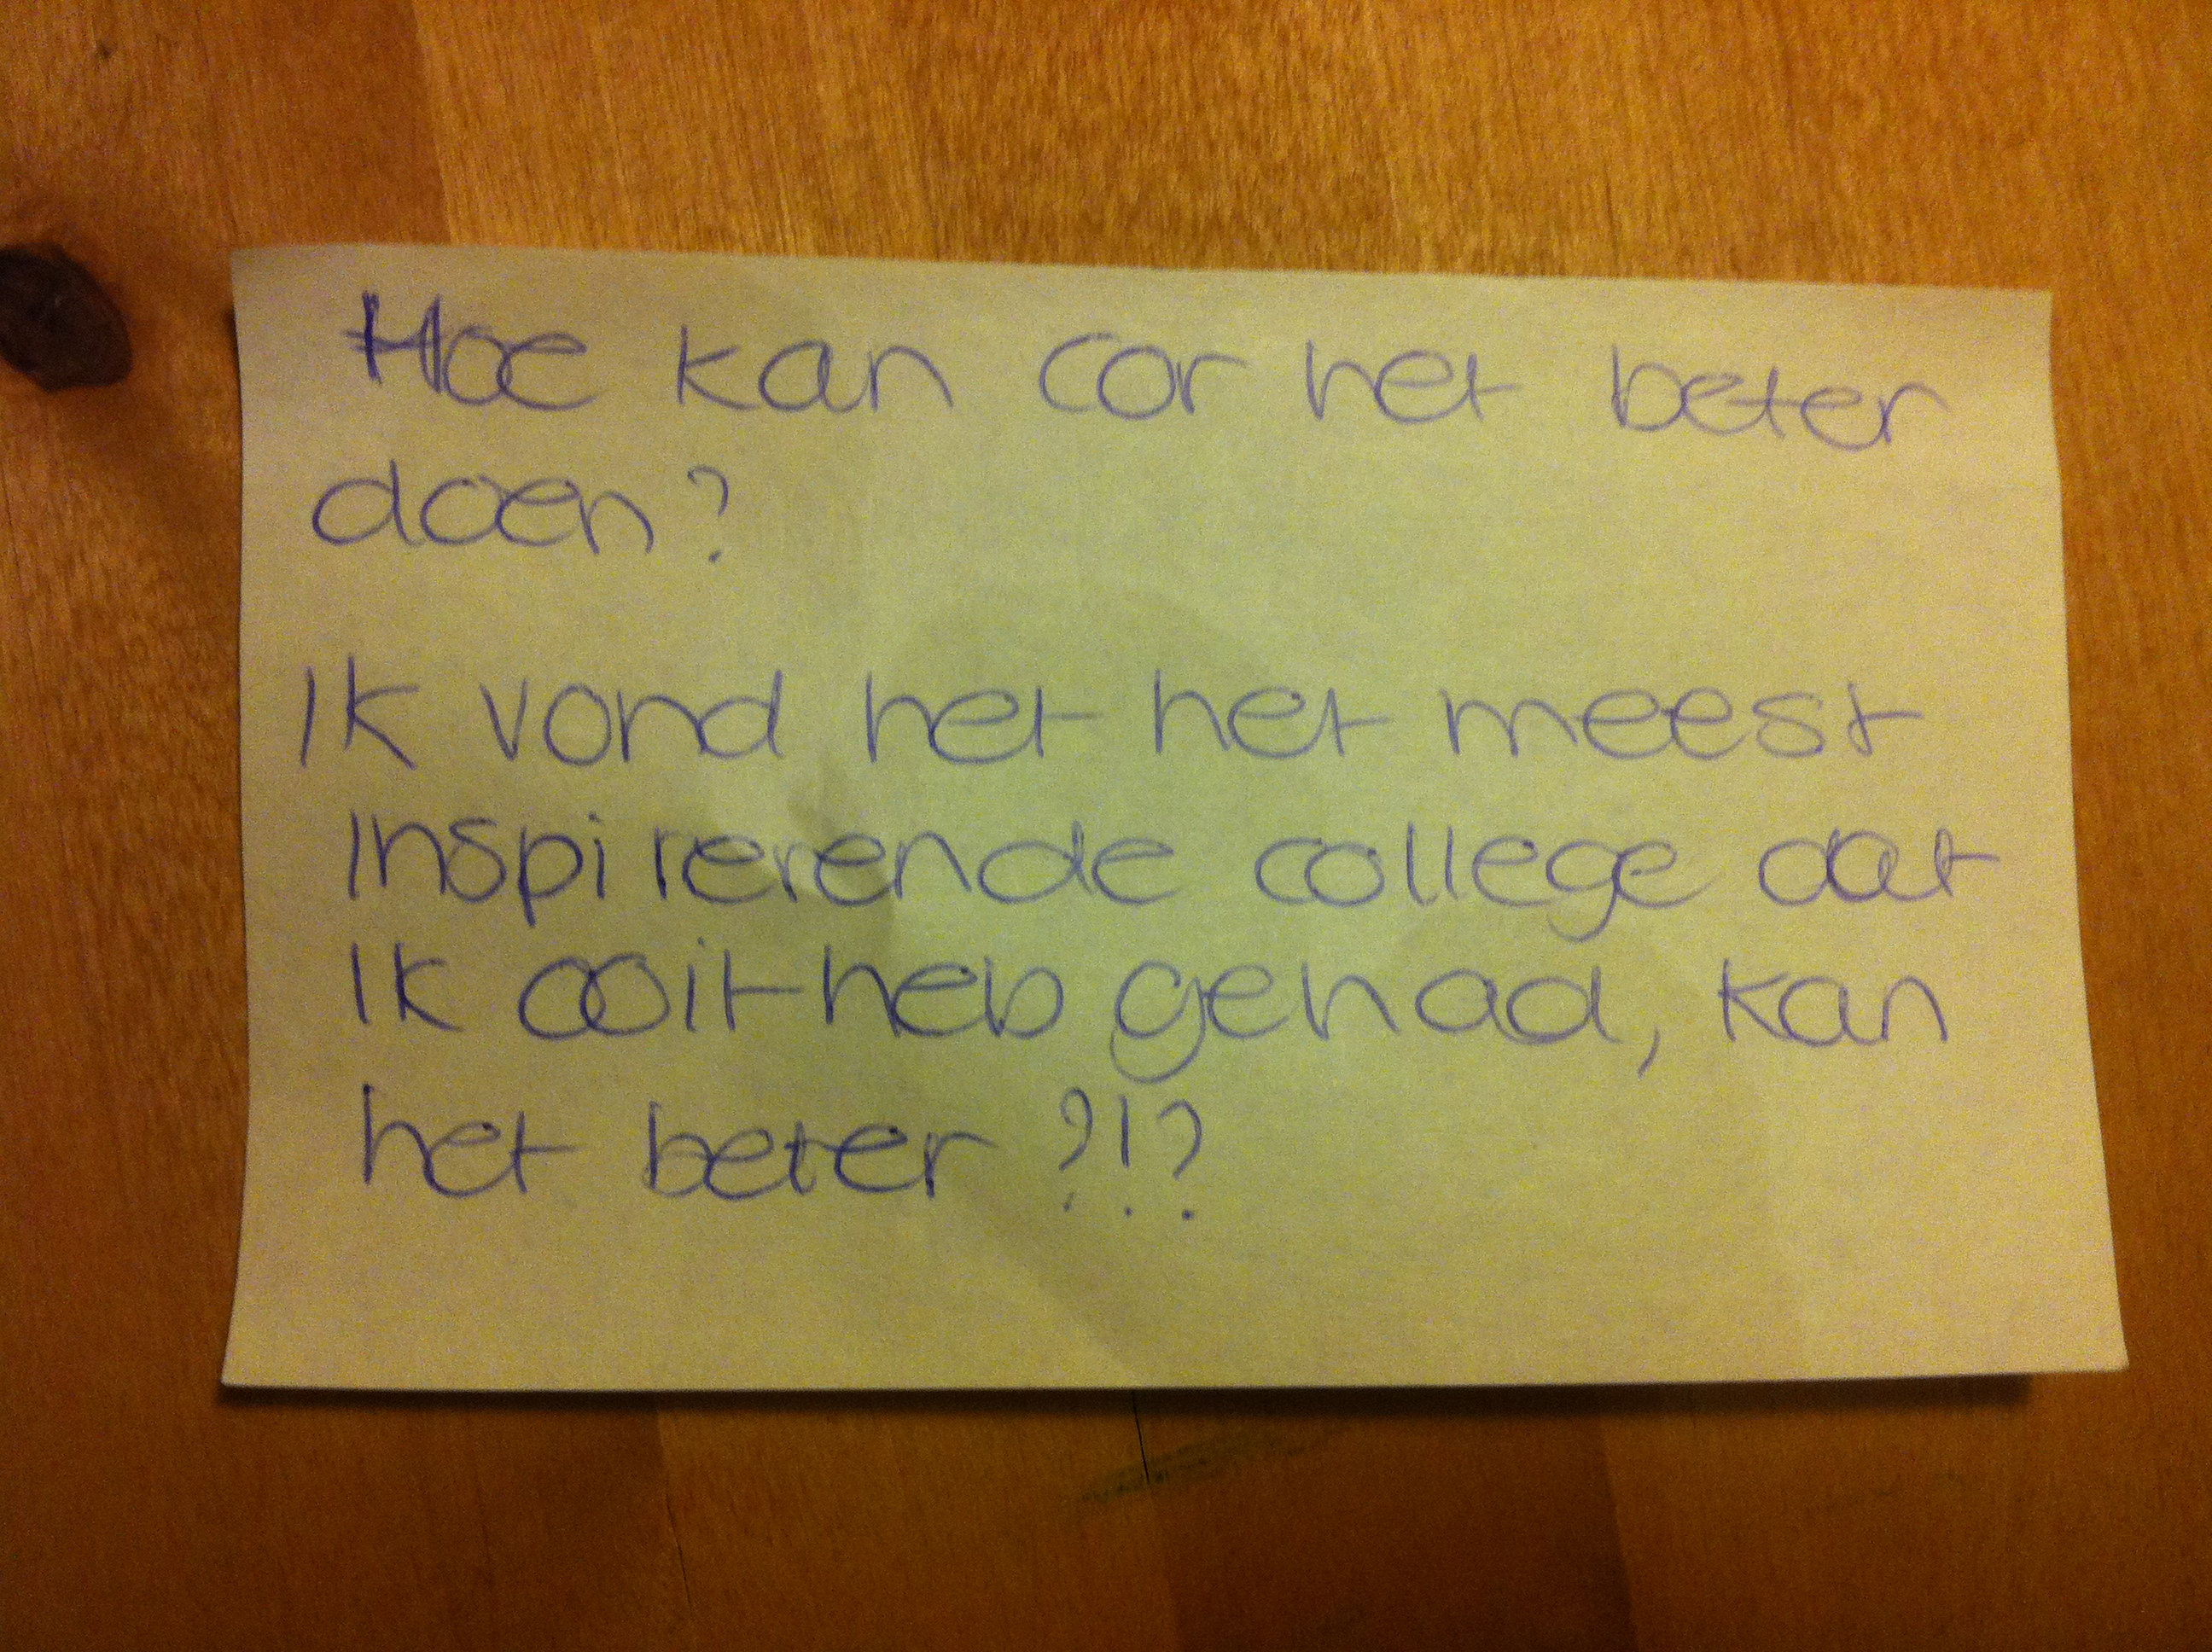 Hoe kan cor het beter
doen?
Ik vond het het meest
inspirerende college dat
ik ooit heb gehad, kan
het beter ?!?